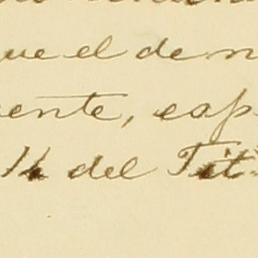 que el de n
ente, esp
16 del Tit.